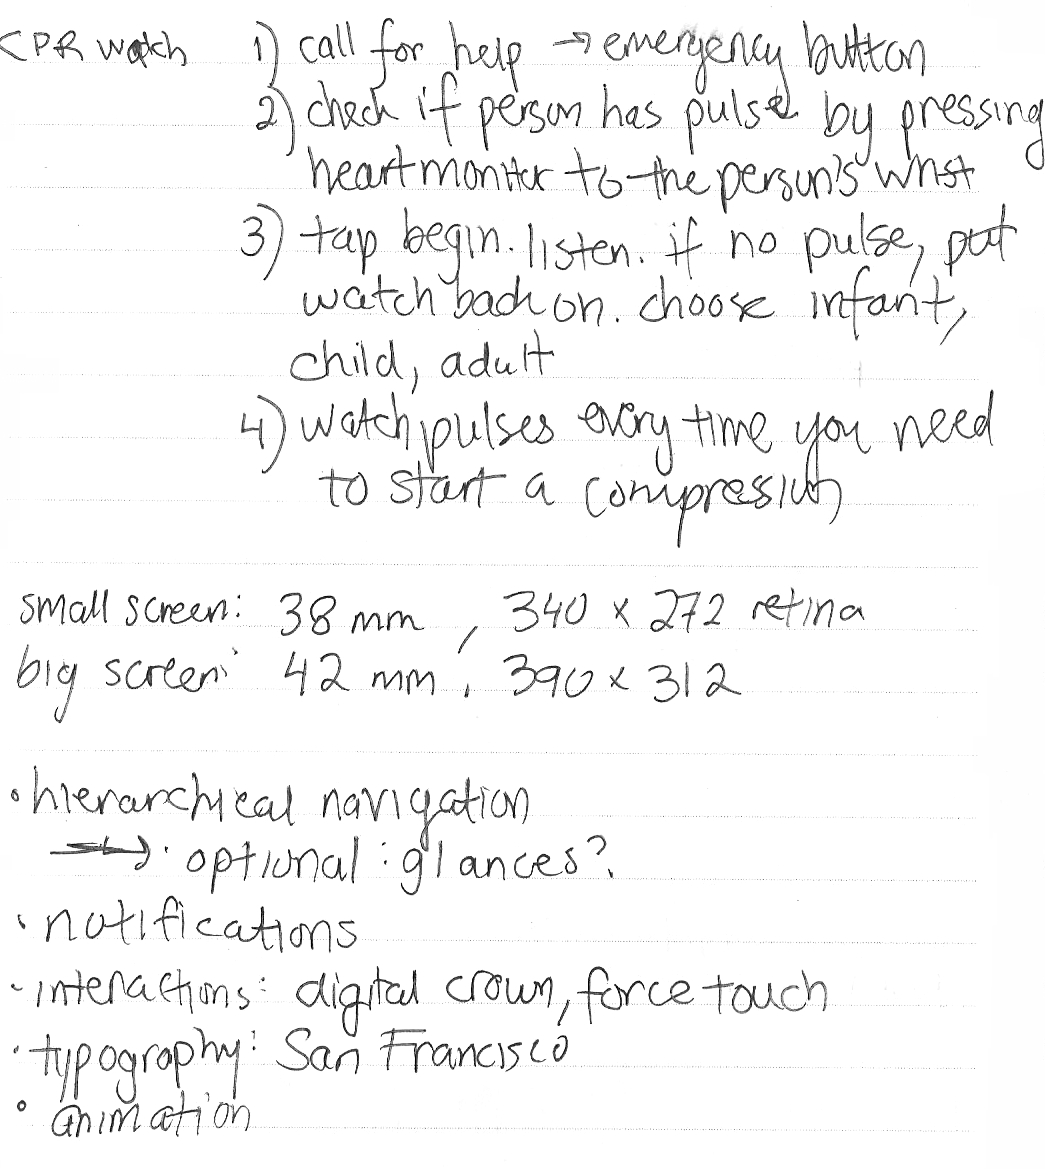 CPR watch 1) call for help → emergency button
2) check if person has pulse by pressing
heart monitor to the person's wrist
3) tap begin. listen. if no pulse, put
watch back on. choose infant,
child, adult
4) watch pulses every time you need
to start a compression
small screen: 38 mm, 340 x 272 retina
big screen: 42 mm, 390 x 312
• hierarchical navigation
→ · optional: glances?
· notifications
- interactions: digital crown, force touch
· typography: San Francisco
• animation